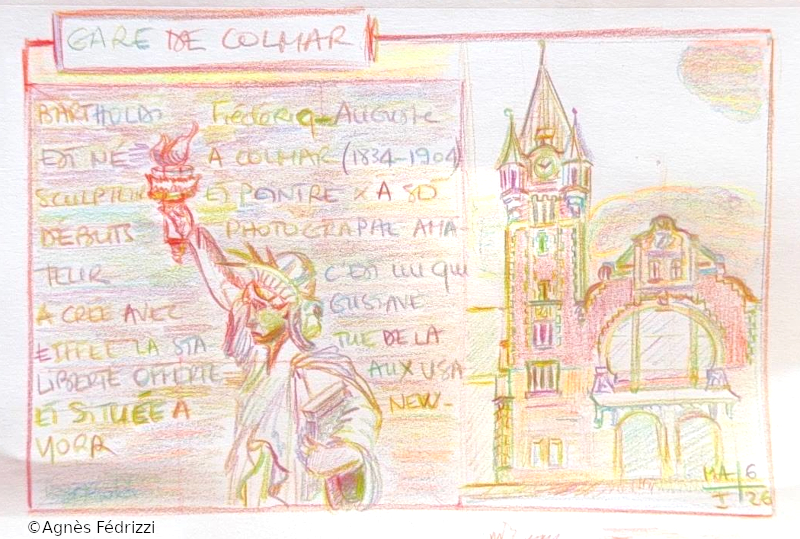 GARE DE COLMAR
BARTHOLDI Frédéric-Auguste
EST NÉ À COLMAR (1834-1904)
SCULPTEUR ET PEINTRE × À SES
DÉBUTS PHOTOGRAPHE AMA-
TEUR C'EST LUI QUI
A CRÉE AVEC GUSTAVE
EIFFEL LA STA- TUE DE LA
LIBERTÉ OFFERTE AUX USA
ET SITUÉE À NEW-
YORK
MA 6
I 26
©Agnès Fédrizzi